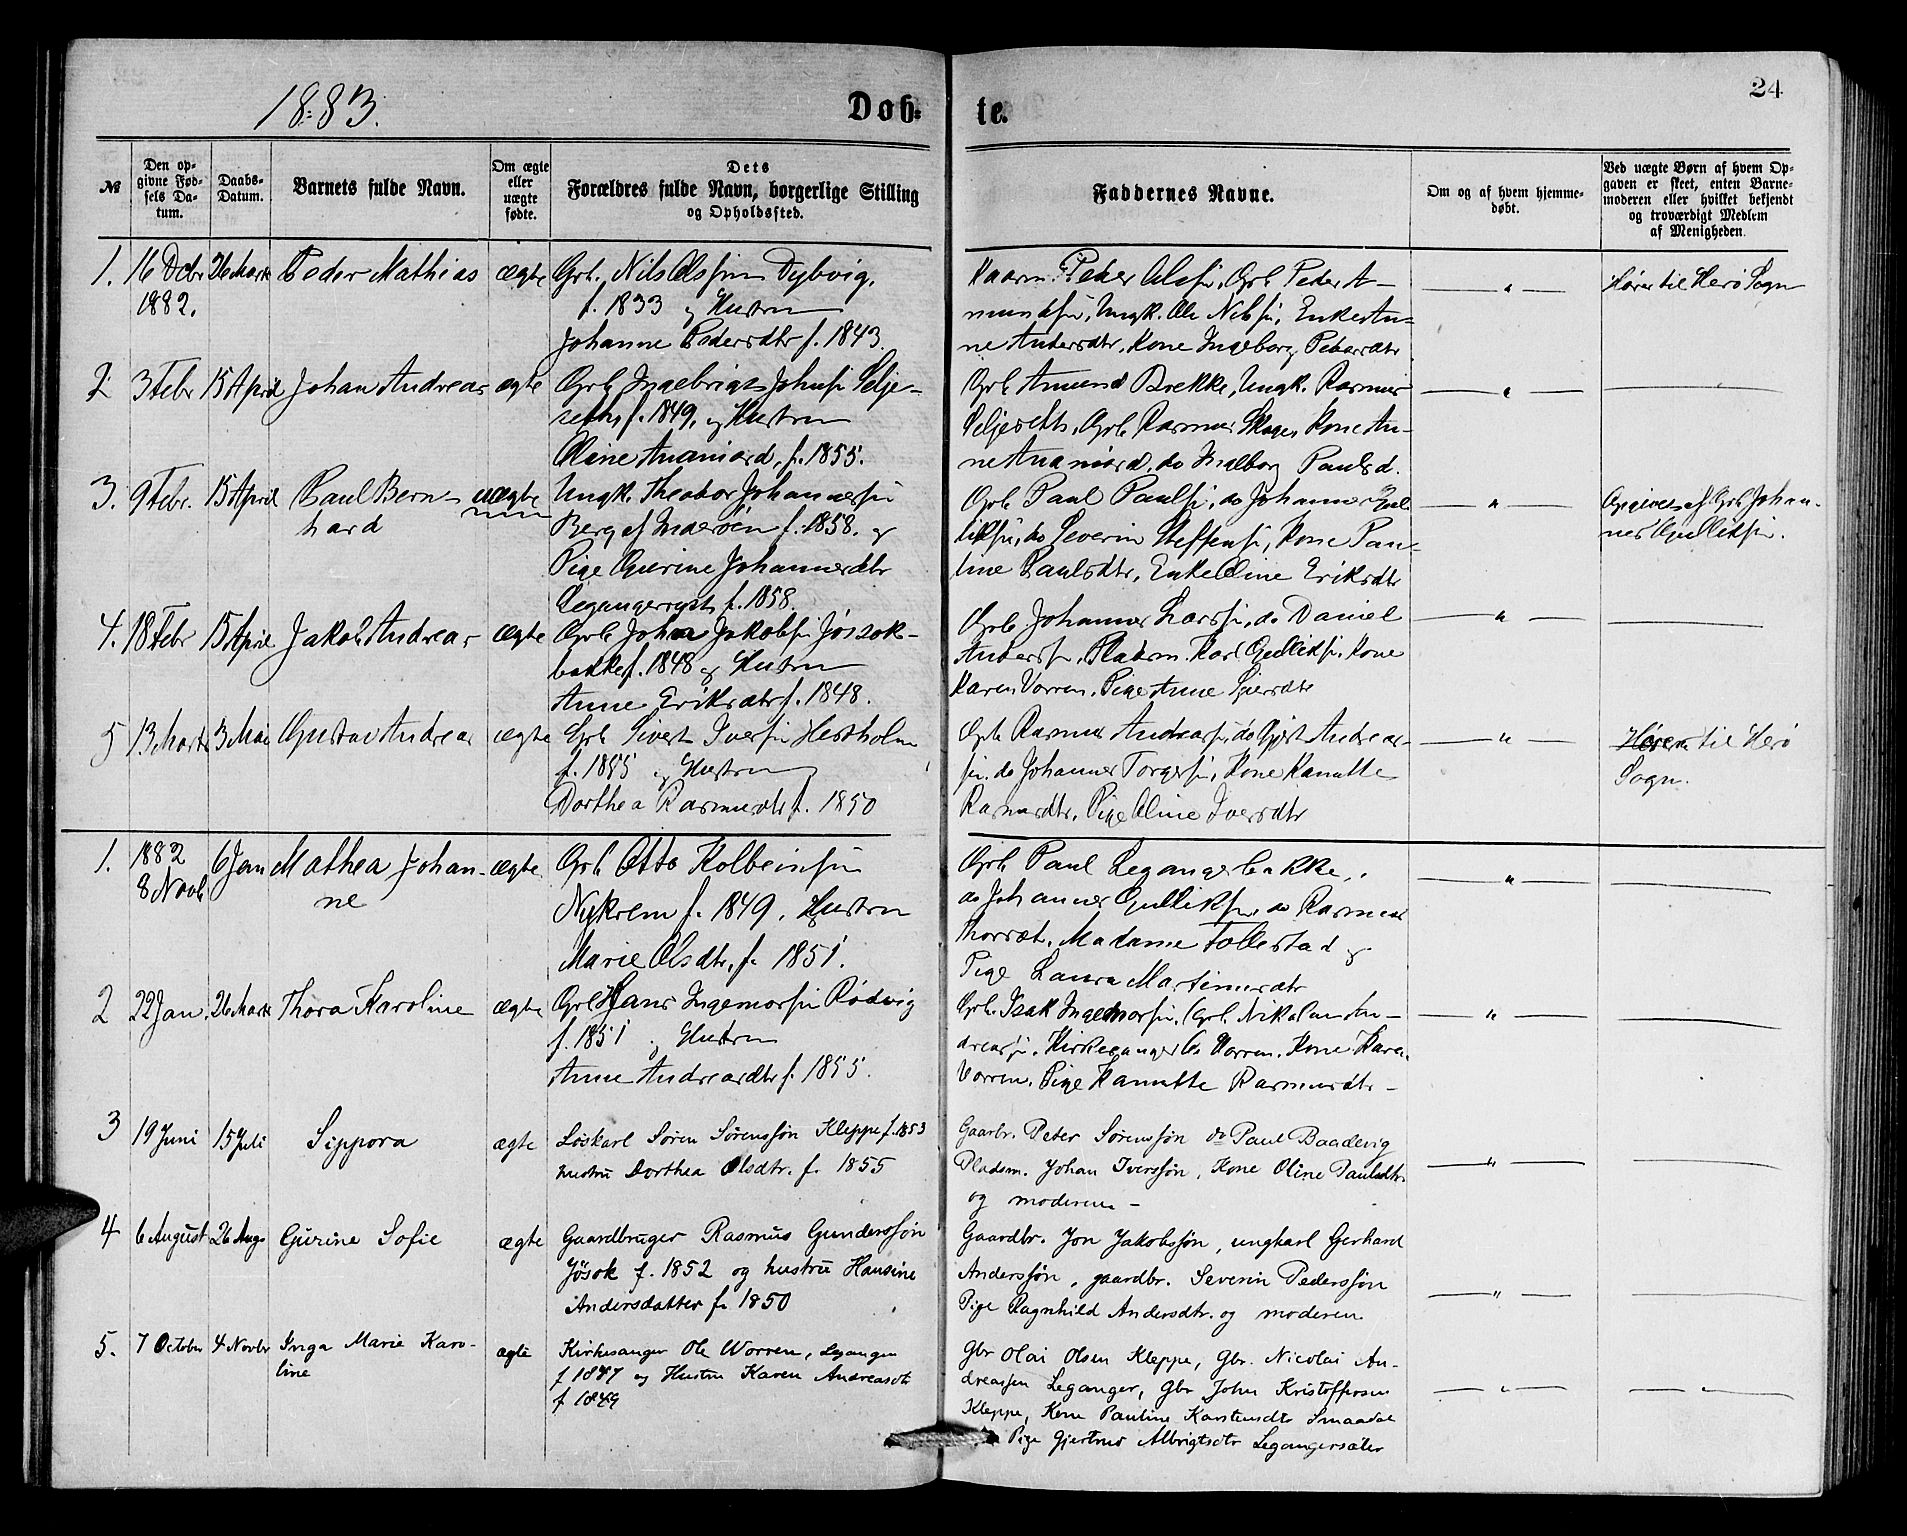 1883.
Døb-
te.
24
№
Den op-
givne Fød-
sels Da-
tum.
Daabs-
Datum.
Barnets fulde Navn.
Om ægte
eller
uægte
fødte.
Dets
Forældres fulde Navn, borgerlige Stilling
og Opholdssted.
Faddernes Navne.
Om og af hvem hjemme-
døbt.
Ved uægte Børn af hvem Op-
gaven er skeet, enten Barne-
moderen eller hvilket bekjendt
og troværdigt Medlem
af Menigheden.
1. 16 Dcbr 26 Marts Peder Mathias ægte Grb. Nils Olssøn Dybvig,
1882. f. 1833 og Hustru
Johanne Pedersdtr f. 1843.
Peder Olssøn, Grb Peder A-
mundssøn, Ungk. Ole Nilssøn, Enke An-
ne Andersdtr, Kone Ingeborg Pedersdtr
Hører til Herø Sogn
2 3 Febr 15 April Johan Andreas ægte Grb Ingebrigt Johnssøn Selje-
seth f. 1849, og Hustru
Oline Ananiasd, f. 1855.
Grb Amund Brekke, Ungk. Rasmus
Seljeseth, Grb Rasmus Skoge, Kone An-
ne Ananiasd, do Ingeborg Paulsd.
3. 9 Febr. 15 April Paul Bern- uægte Ungk. Theodor Johannessøn
hard Berg af Inderøen f. 1858. og
Pige Gurine Johannesdtr
Legangerøyst f. 1858.
Grb Paul Paulssøn, do Johannes Gul-
likssøn, do Severin Steffenssøn, Kone Pau-
line Paulsdtr, Enke Oline Eriksdtr
Opgivet af Grb Johan-
nes Gullikssøn.
4. 18 Febr 15 April Jakob Andreas ægte Grb John Jakobssøn Jøssok-
bakke f. 1848 og Hustru
Anne Eriksdtr f. 1848.
Grb Johannes Larssøn, do Daniel
Anderssøn, Pladsm. Karl Gullikssøn, Kone
Karen Vorren, Pige Anne
5 13 Marts 3 Mai Gustav Andreas ægte Grb Sivert Iverssøn Hestholm
f. 1855 og Hustru
Dorthea Rasmusdtr f. 1850
Grb Rasmus Andreassøn, do Gjert Andreas-
søn, do Johannes Torgerssøn, Kone Kanutte
Rasmusdtr, Pige Oline Iversdtr
Hører til Herø
Sogn.
1. 1882 6 Jan Mathea Johan- ægte Grb Otto Kolbeinssøn
8 Novb ne Nykrem f. 1849, Hustru
Marie Olsdtr, f. 1851.
Grb Paul Legangerbakke,
do Johannes Gullikssøn, do Rasmus
Thorset, Madame Follestad og
Pige Laura Martinusdtr
2 22 Jan. 26 Marts Thora Karoline ægte Grb Hans Ingemorssøn Rødvig
f. 1851 og Hustru
Anne Andreasdtr f. 1855.
Grb. Isak Ingemorssøn, Grb. Nikolai An-
dreassøn, Kirkesanger Ole Vorren, Kone Karen
Vorren, Pige Kanutte Rasmusdtr -
3 19 Juni 15 Juli Sippora ægte Løskarl Søren Sørenssøn Kleppe f. 1853
hustru Dorthea Olsdtr. f. 1855
Gaarbr. Peter Sørenssøn do Paul Baadevig
Pladsm. Johan Iverssøn, Kone Oline Paulsdtr.
og moderen -
4 6 August 26 Aug. Gurine Sofie ægte Gaardbruger Rasmus Gunderssøn
Jøsok f. 1852 og hustru Hansine
Andersdatter f. 1850
Gaardbr. Jon Jakobssøn, ungkarl Gerhard
Anderssøn, gaardbr. Severin Pederssøn
Pige Ragnhild Andersdtr. og moderen
5. 7 October 4 Novbr Inga Marie Karo- ægte Kirkesanger Ole Worren, Leganger
line f 1847 og Hustru Karen Andreasdtr
f 1849
Gbr Olai Olsen Kleppe, Gbr. Nicolai An-
dreassen Leganger, Gbr John Kristoffersen
Kleppe, Kone Pauline Karstensdtr Smaadal
Pige Gjertrud Albrigtsdtr Legangersæter